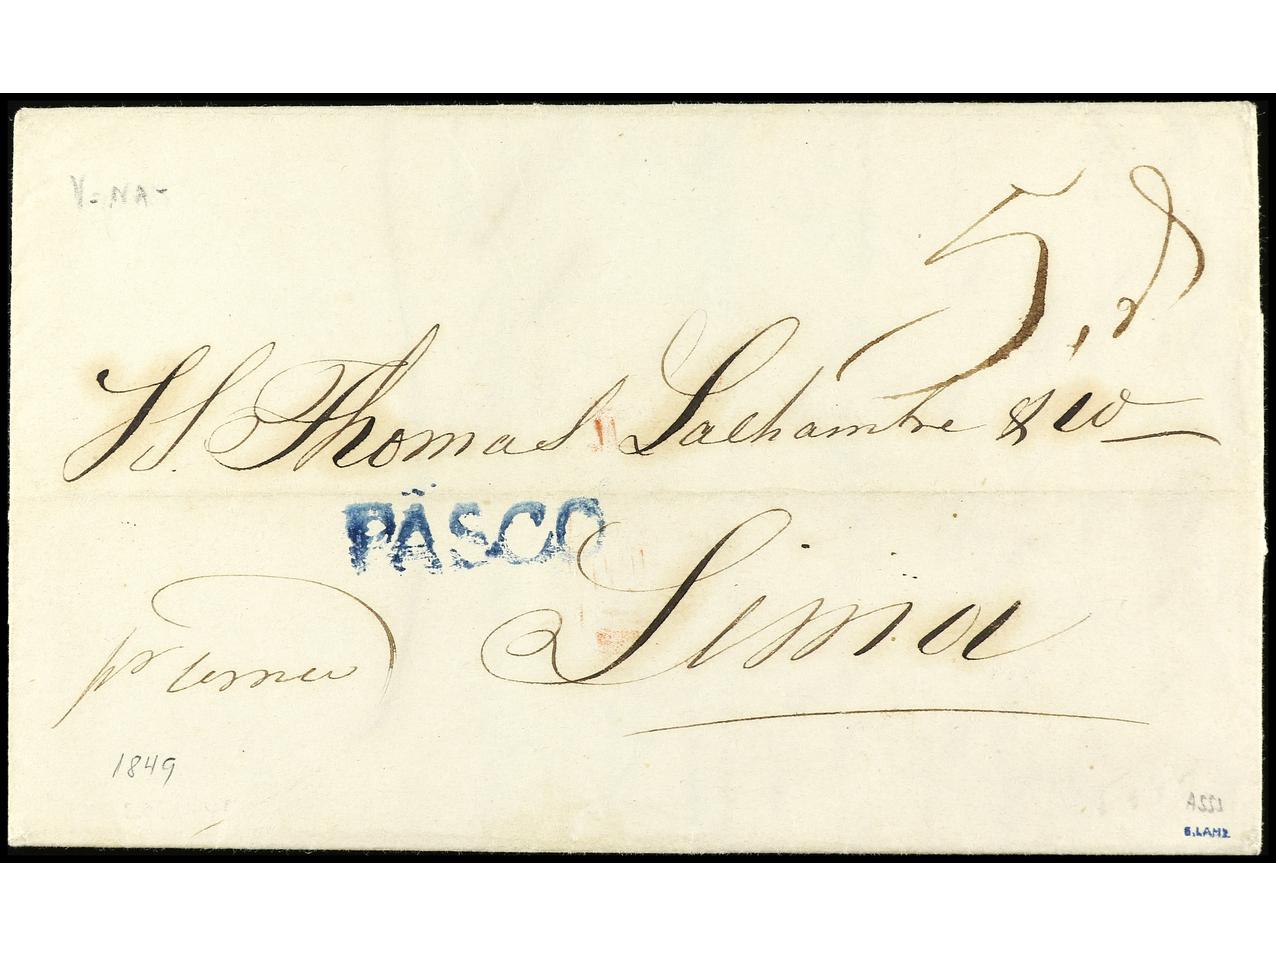 V=NA-
5,8
SS. Thomas Lachambre & Co
PASCO
Lima
pr correo
1849
A222
E.LAMZ